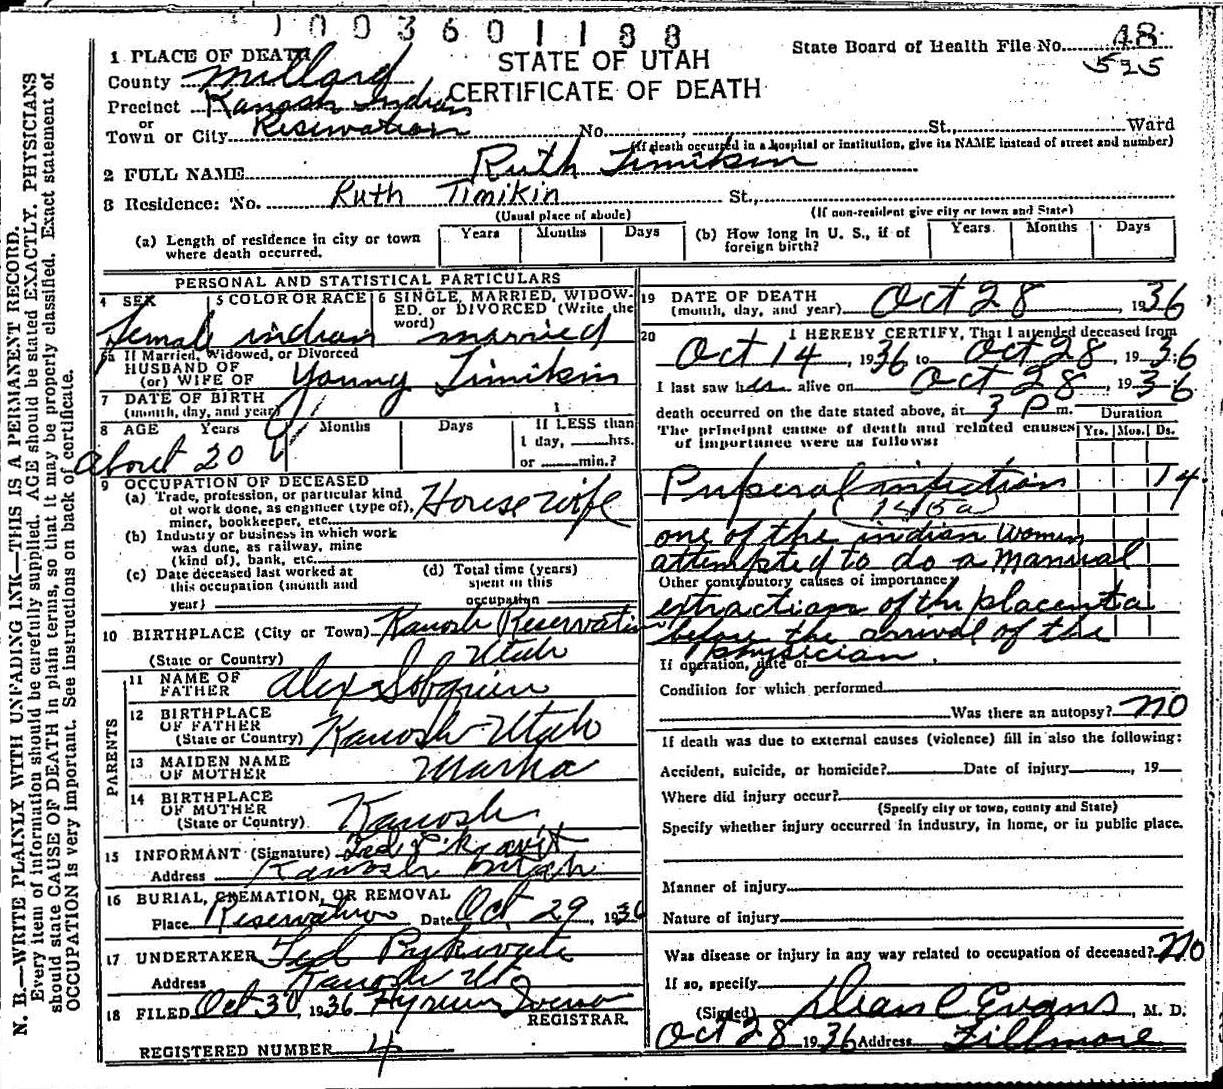 1003601188
1 PLACE OF DEATH
STATE OF UTAH
CERTIFICATE OF DEATH
State Board of Health File No. 48
525
County Millard
Precinct Kanosh Indian
or
Town or City Reservation No. , St., Ward
(If death occurred in a hospital or institution, give its NAME instead of street and number)
2 FULL NAME Ruth Timikin
3 Residence: No. Ruth Timikin St.,
(Usual place of abode) (If non-resident give city or town and State)
(a) Length of residence in city or town where death occurred. Years Months Days (b) How long in U. S., if of foreign birth? Years Months Days
PERSONAL AND STATISTICAL PARTICULARS
4 SEX 5 COLOR OR RACE 6 SINGLE, MARRIED, WIDOWED, OR DIVORCED (Write the word)
Female indian married
5a If Married, Widowed, or Divorced
HUSBAND OF
(or) WIFE OF Young Timikin
7 DATE OF BIRTH
(month, day, and year)
8 AGE Years Months Days If LESS than
1 day, hrs.
or min.?
About 20
9 OCCUPATION OF DECEASED
(a) Trade, profession, or particular kind
of work done, as engineer (type of),
miner, bookkeeper, etc. House wife
(b) Industry or business in which work
was done, as railway, mine
(kind of), bank, etc.
(c) Date deceased last worked at
this occupation (month and
year)
(d) Total time (years)
spent in this
occupation
10 BIRTHPLACE (City or Town) Kanosh Reservation
(State or Country) Utah
PARENTS
11 NAME OF
FATHER Alex
12 BIRTHPLACE
OF FATHER
(State or Country) Kanosh Utah
13 MAIDEN NAME
OF MOTHER
14 BIRTHPLACE
OF MOTHER
(State or Country) Kanosh
15 INFORMANT (Signature) Ted
Address Kanosh Utah
16 BURIAL, CREMATION, OR REMOVAL
Place Reservation Date Oct 29, 1936
17 UNDERTAKER Ted
Address Kanosh Ut
18 FILED Oct 30, 1936 Hyrum
REGISTRAR.
REGISTERED NUMBER 4
19 DATE OF DEATH
(month, day, and year) Oct 28, 1936
20 I HEREBY CERTIFY, That I attended deceased from
Oct 14, 1936 to Oct 28, 1936
I last saw her alive on Oct 28, 1936
death occurred on the date stated above, at 3 P m.
Duration
The principal cause of death and related causes
of importance were as follows:
Yrs. Mos. Ds.
Puperal infection 14
145a
one of the indian women
attempted to do a manual
Other contributory causes of importance:
extraction of the placenta
before the arrival of the
physician.
If operation, date of
Condition for which performed
Was there an autopsy? no
If death was due to external causes (violence) fill in also the following:
Accident, suicide, or homicide? Date of injury , 19
Where did injury occur?
(Specify city or town, county and State)
Specify whether injury occurred in industry, in home, or in public place.
Manner of injury
Nature of injury
Was disease or injury in any way related to occupation of deceased? no
If so, specify
(Signed) Dean C Evans, M. D.
Oct 28 1936 Address Fillmore
N. B.—WRITE PLAINLY WITH UNFADING INK—THIS IS A PERMANENT RECORD.
Every item of information should be carefully supplied. AGE should be stated EXACTLY. PHYSICIANS
should state CAUSE OF DEATH in plain terms, so that it may be properly classified. Exact statement of
OCCUPATION is very important. See instructions on back of certificate.